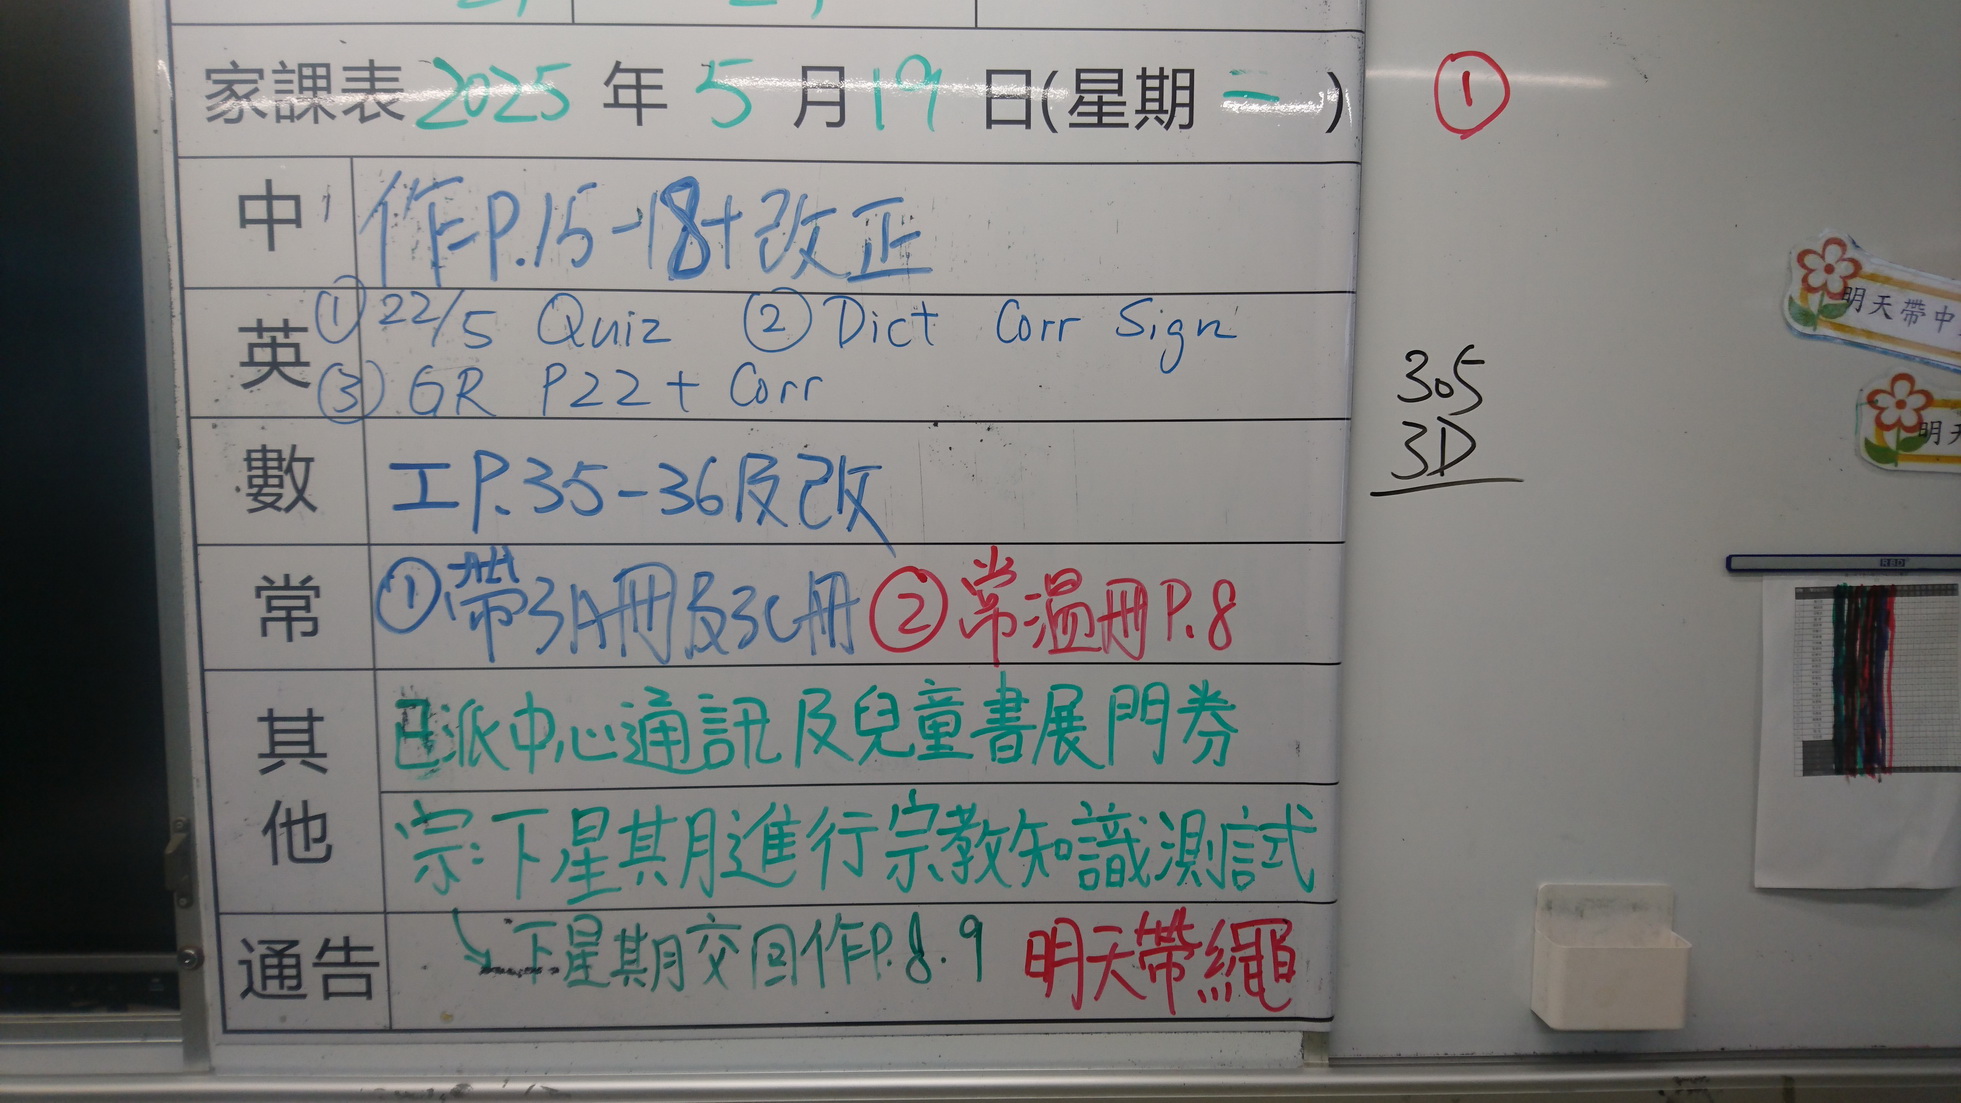 家課表 2025 年 5 月 19 日(星期 一 )
①
中 作P.15-18+改正
英 ① 22/5 Quiz ② Dict Corr Sign
③ GR P22 + Corr
數 工P.35-36及改
常 ①帶3A冊及3C冊 ②常溫冊P.8
其他 已派中心通訊及兒童書展門券
宗:下星其月進行宗教知識測試
通告 下星期交回作P.8.9 明天帶繩
305
3D
明天帶中
明天
RBD